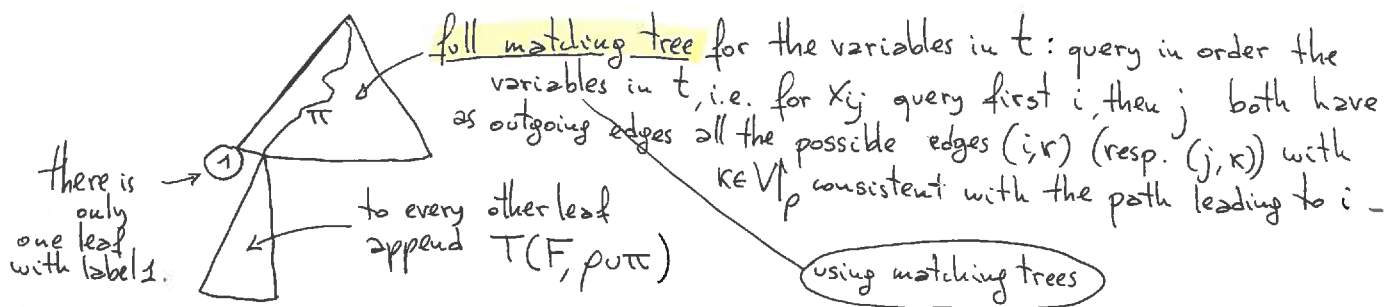 full matching tree for the variables in t: query in order the
variables in t, i.e. for Xij query first i, then j both have
as outgoing edges all the possible edges (i,κ) (resp. (j,κ)) with
κ∈V↾ρ consistent with the path leading to i -
π
1
there is
only
one leaf
with label 1.
to every other leaf
append T(F, ρ∪π)
using matching trees